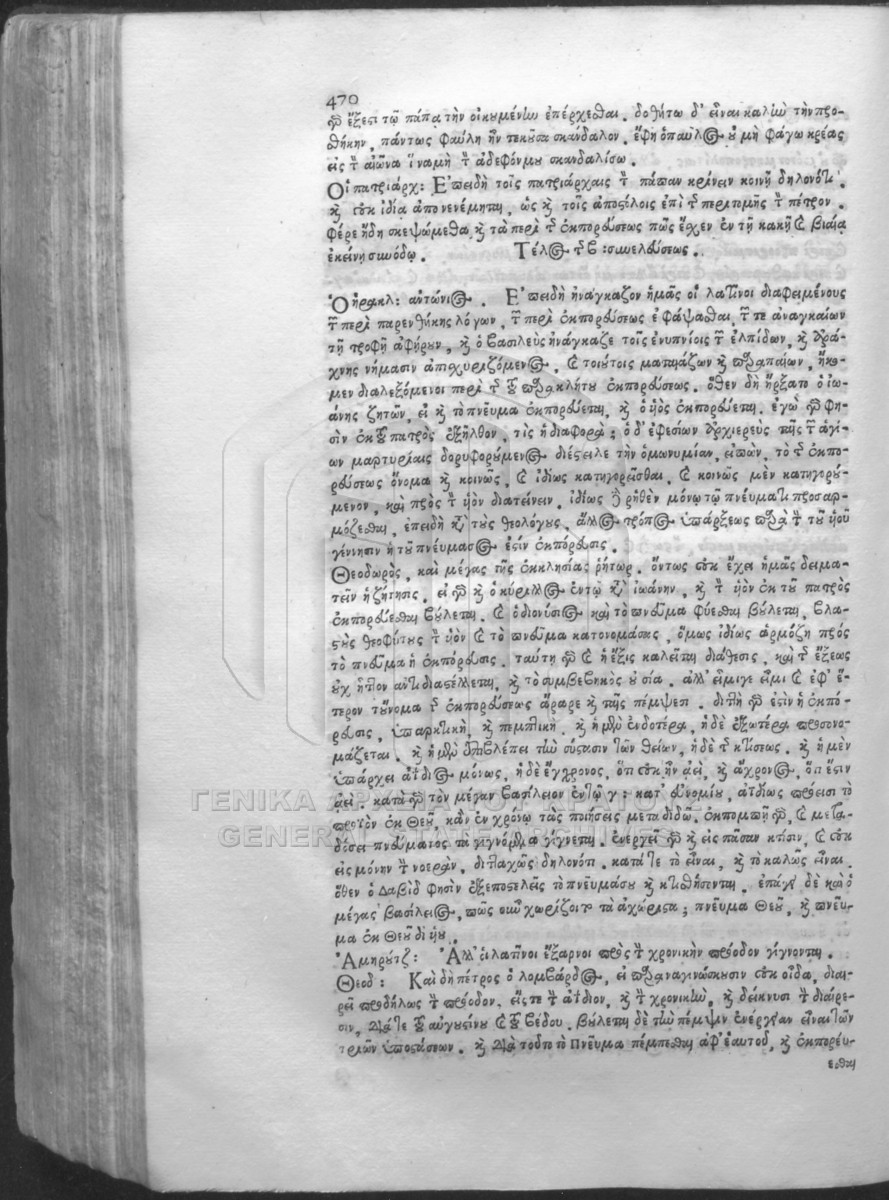 470
γὸ ἔξεστι τῷ πάπα τὴν οἰκουμένην ἐπέρχεσθαι. δοθήτω δ' εἶναι καλὴν τὴν προ-
σθήκην, πάντως φαύλη ἦν τεκοῦσα σκάνδαλον. ἔφη ὁ παῦλος οὐ μὴ φάγω κρέας
εἰς τὸν αἰῶνα ἵνα μὴ τὸν ἀδεφόν μου σκανδαλίσω.
Οἱ πατριάρχ: Ἐπειδὴ τοῖς πατριάρχαις τὸν πάπαν κρίνειν κοινῇ δηλονότι,
καὶ οὐκ ἰδίᾳ ἀπονενέμηται, ὡς καὶ τοῖς ἀποστόλοις ἐπὶ τῆς περιτομῆς τὸν πέτρον.
Φέρε ἤδη σκεψώμεθα καὶ τὰ περὶ τῆς ἐκπορεύσεως πῶς ἔχεν ἐν τῇ κακῇ καὶ βιαία
ἐκείνη συνόδῳ. Τέλος τῆς β: συνελεύσεως.
Ὁ ἡρακλ: ἀντώνιος. Ἐπειδὴ ἠνάγκαζον ἡμᾶς οἱ λατῖνοι διαφειμένους
τῶν περὶ παρενθήκης λόγων, τῶν περὶ ἐκπορεύσεως ἐφάψασθαι, τῶν τε ἀναγκαίων
τῇ τροφῇ ἀφῄρουν, καὶ ὁ βασιλεὺς ἠνάγκαζε τοῖς ἐνυπνίοις τῶν ἐλπίδων, καὶ ἀρά-
χνης νήμασιν ἀπισχυριζόμενος, καὶ τοιούτοις ματαιάζων καὶ παραπαίων, ἥκο-
μεν διαλεξόμενοι περὶ τῆς τοῦ παρακλήτου ἐκπορεύσεως. ὅθεν δὴ ἤρξατο ὁ ἰω-
άνης ζητῶν, εἰ καὶ τὸ πνεῦμα ἐκπορεύεται, καὶ ὁ υἱὸς ἐκπορεύεται. ἐγὼ γὸ φη-
σὶν ἐκ τοῦ πατρὸς ἐξῆλθον, τίς ἡ διαφορὰ; ὁ δ' ἐφεσίων ἀρχιερεὺς ταῖς τῶν ἁγί-
ων μαρτυρίαις δορυφορούμενος διέστειλε τὴν ὁμωνυμίαν, εἰπὼν, τὸ τῆς ἐκπο-
ρεύσεως ὄνομα καὶ κοινῶς, καὶ ἰδίως κατηγορεῖσθαι, καὶ κοινῶς μὲν κατηγορού-
μενον, καὶ πρὸς τὸν υἱὸν διατείνειν, ἰδίως δὲ ῥηθὲν μόνῳ τῷ πνεύματι προσαρ-
μόζεσθαι, ἐπειδὴ κατὰ τοὺς θεολόγους, ἄλλος τρόπος ὑπάρξεως παρὰ τὴν τοῦ υἱοῦ
γέννησιν ἡ τοῦ πνεύματος ἐστὶν ἐκπόρευσις.
Θεοδωρὸς, καὶ μέγας τῆς ἐκκλησίας ῥήτωρ. ὄντως οὐκ ἔχει ἡμᾶς δειμα-
τεῖν ἡ ζήτησις. εἰ γὸ καὶ ὁ κύριλλος ἐν τῷ κατὰ ἰωάνην, καὶ τὸν υἱὸν ἐκ τοῦ πατρὸς
ἐκπορεύεσθαι βούλεται. καὶ ὁ διονύσιος καὶ τὸ πνεῦμα φύεσθαι βούλεται, βλα-
στοὺς θεοφύτους τὸν υἱὸν καὶ τὸ πνεῦμα κατονομάσας, ὅμως ἰδίως ἁρμόζη πρὸς
τὸ πνεῦμα ἡ ἐκπόρευσις. ταύτη γὸ καὶ ἡ ἕξις καλεῖται διάθεσις, καὶ τῆς ἕξεως
οὐχ ἧττον ἀντιδιαστέλλεται, καὶ τὸ συμβεβηκὸς οὐσία. ἀλλ' εἴμιγε εἶμι καὶ ἐφ' ἕ-
τερον τοὔνομα τῆς ἐκπορεύσεως ἄραρε καὶ ταῖς πέμψεσι. διτλὴ γὸ ἐστὶν ἡ ἐκπό-
ρευσις, ὑπαρκτικὴ, καὶ πεμπτικὴ. καὶ ἡ μὲν ἐνδοτέρα, ἡ δὲ ἐξωτέρα προσονο-
μάζεται. καὶ ἡ μὲν ἐπιβλέπει τὴν σύστασιν τῶν θείων, ἡ δὲ τῆς κτίσεως. καὶ ἡ μὲν
ὑπάρχει ἀΐδιος μόνως, ἡ δὲ ἔγχρονος, ὅτι οὐκ ἦν ἀεὶ, καὶ ἄχρονος, ὅτι ἔστιν
ἀεὶ. κατὰ γὸ τὸν μέγαν βασίλειον ἐν τῷ γ: κατ' εὐνομίου, ἀϊδίως πρόεισι τὸ
πρῶτον ἐκ Θεοῦ, κἂν ἐν χρόνῳ τὰς ποιήσεις μεταδιδῶ. ἐκπομπῇ γὸ, καὶ μετα-
δόσει πνεύματος τὰ γιγνόμενα γίγνεται. ἐνεργεῖ γὸ καὶ εἰς πᾶσαν κτίσιν, καὶ οὐκ
εἰς μόνην τὴν νοερὰν, διτλαχῶς δηλονότι. κατά τε τὸ εἶναι, καὶ τὸ καλῶς εἶναι.
ὅθεν ὁ Δαβὶδ φησὶν ἐξεποστελεῖς τὸ πνεῦμά σου καὶ κτισθήσονται. ἐπάγει δὲ καὶ ὁ
μέγας βασίλειος, πῶς οὖν χωρίζοιτο τὰ ἀχώριστα; πνεῦμα Θεοῦ, καὶ πνεῦ-
μα ἐκ Θεοῦ δι' υἱοῦ.
Ἀμηρούτζ: Ἀλλ' οἱ λατῖνοι ἔξαρνοι πρὸς τὴν χρονικὴν πρόοδον γίγνονται.
Θεοδ: Καὶ δὴ πέτρος ὁ λομβάρδος, εἰ παραναγινώσκουσιν οὐκ οἶδα, διαι-
ρεῖ προδήλως τὴν πρόοδον. εἴς τε τὴν ἀΐδιον, καὶ τὴν χρονικὴν, καὶ δείκνυσι τὴν διαίρε-
σιν, διά τε τοῦ αὐγουστίνου καὶ τοῦ βέδου. βούλεται δὲ τὴν πέμψιν ἐνέργειαν εἶναι τῶν
τριῶν ὑποστάσεων. καὶ διὰ τοῦτο τὸ Πνεῦμα πέμπεσθαι ἀφ' ἑαυτοῦ, καὶ ἐκπορεύ-
εσθαι
ΓΕΝΙΚΑ ΑΡΧΕΙΑ ΤΟΥ ΚΡΑΤΟΥΣ
GENERAL STATE ARCHIVES